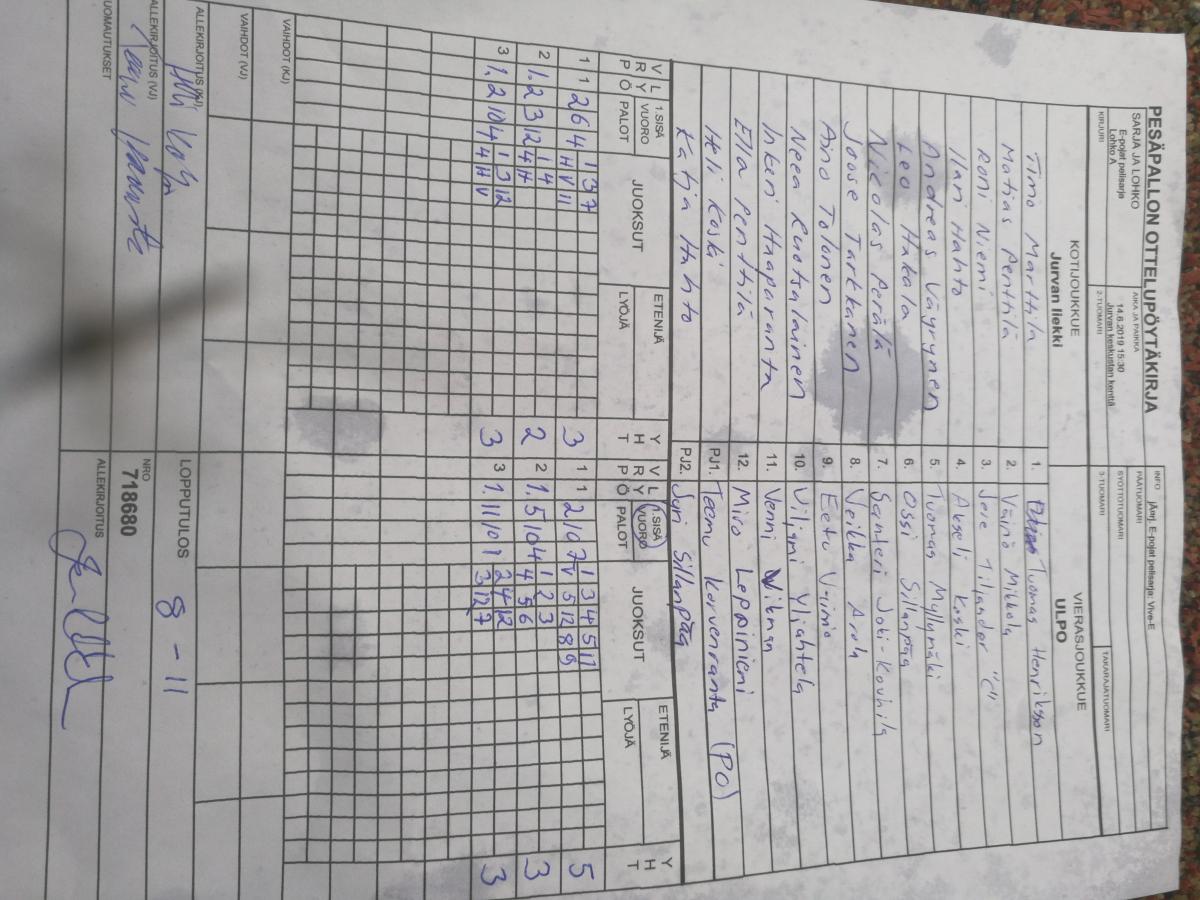 PESÄPALLON OTTELUPÖYTÄKIRJA
SARJA JA LOHKO
E-pojat pelisarja
Lohko A
AIKA JA PAIKKA
14.6.2019 15:30
Jurvan keskustan kenttä
INFO jÄrj. E-pojat pelisarja: Vive-E
PÄÄTUOMARI
SYÖTTÖTUOMARI
TAKARAJATUOMARI
KIRJURI
2-TUOMARI
3-TUOMARI
KOTIJOUKKUE
Jurvan liekki
VIERASJOUKKUE
ULPO
Timo Marttila 1. Tuomas Henriksson
Matias Penttilä 2. Väinö Mikkola
Roni Niemi 3. Jere Tiljander "C"
Ilari Hahto 4. Akseli Koski
Andreas Väyrynen 5. Tuomas Myllymäki
Leo Hakala 6. Ossi Sillanpää
Nicolas Perälä 7. Santeri Joki-Kouhila
Joose Tarkkanen 8. Veikka Arola
Aino Tolonen 9. Eetu Vainio
Neea Ruotsalainen 10. Viljami Yliahtela
Inkeri Haaparanta 11. Venni Wikman
Ella Penttilä 12. Miro Leppiniemi
Heli Koski PJ1. Teemu Korvenranta (PO)
Katja Hahto PJ2. Jyri Sillanpää
V R P L Y Ö 1.SISÄ VUORO PALOT JUOKSUT ETENIJÄ LYÖJÄ Y H T V R P L Y Ö 1.SISÄ VUORO PALOT JUOKSUT ETENIJÄ LYÖJÄ Y H T
1 1 2 6 4 1 3 7 3 1 1 2 10 7 1 3 4 5 11 5
H V 11 V 5 12 8 9
2 1. 2 3 12 1 4 2 2 1. 5 10 4 1 2 3 3
4 H 4 5 6
3 1. 2 10 4 1 3 12 3 3 1. 11 10 1 2 4 12 3
4 H V 3 12 7
VAIHDOT (KJ)
VAIHDOT (VJ)
LOPPUTULOS 8 - 11
ALLEKIRJOITUS (KJ)
ALLEKIRJOITUS (VJ)
NRO
718680
HUOMAUTUKSET
ALLEKIRJOITUS